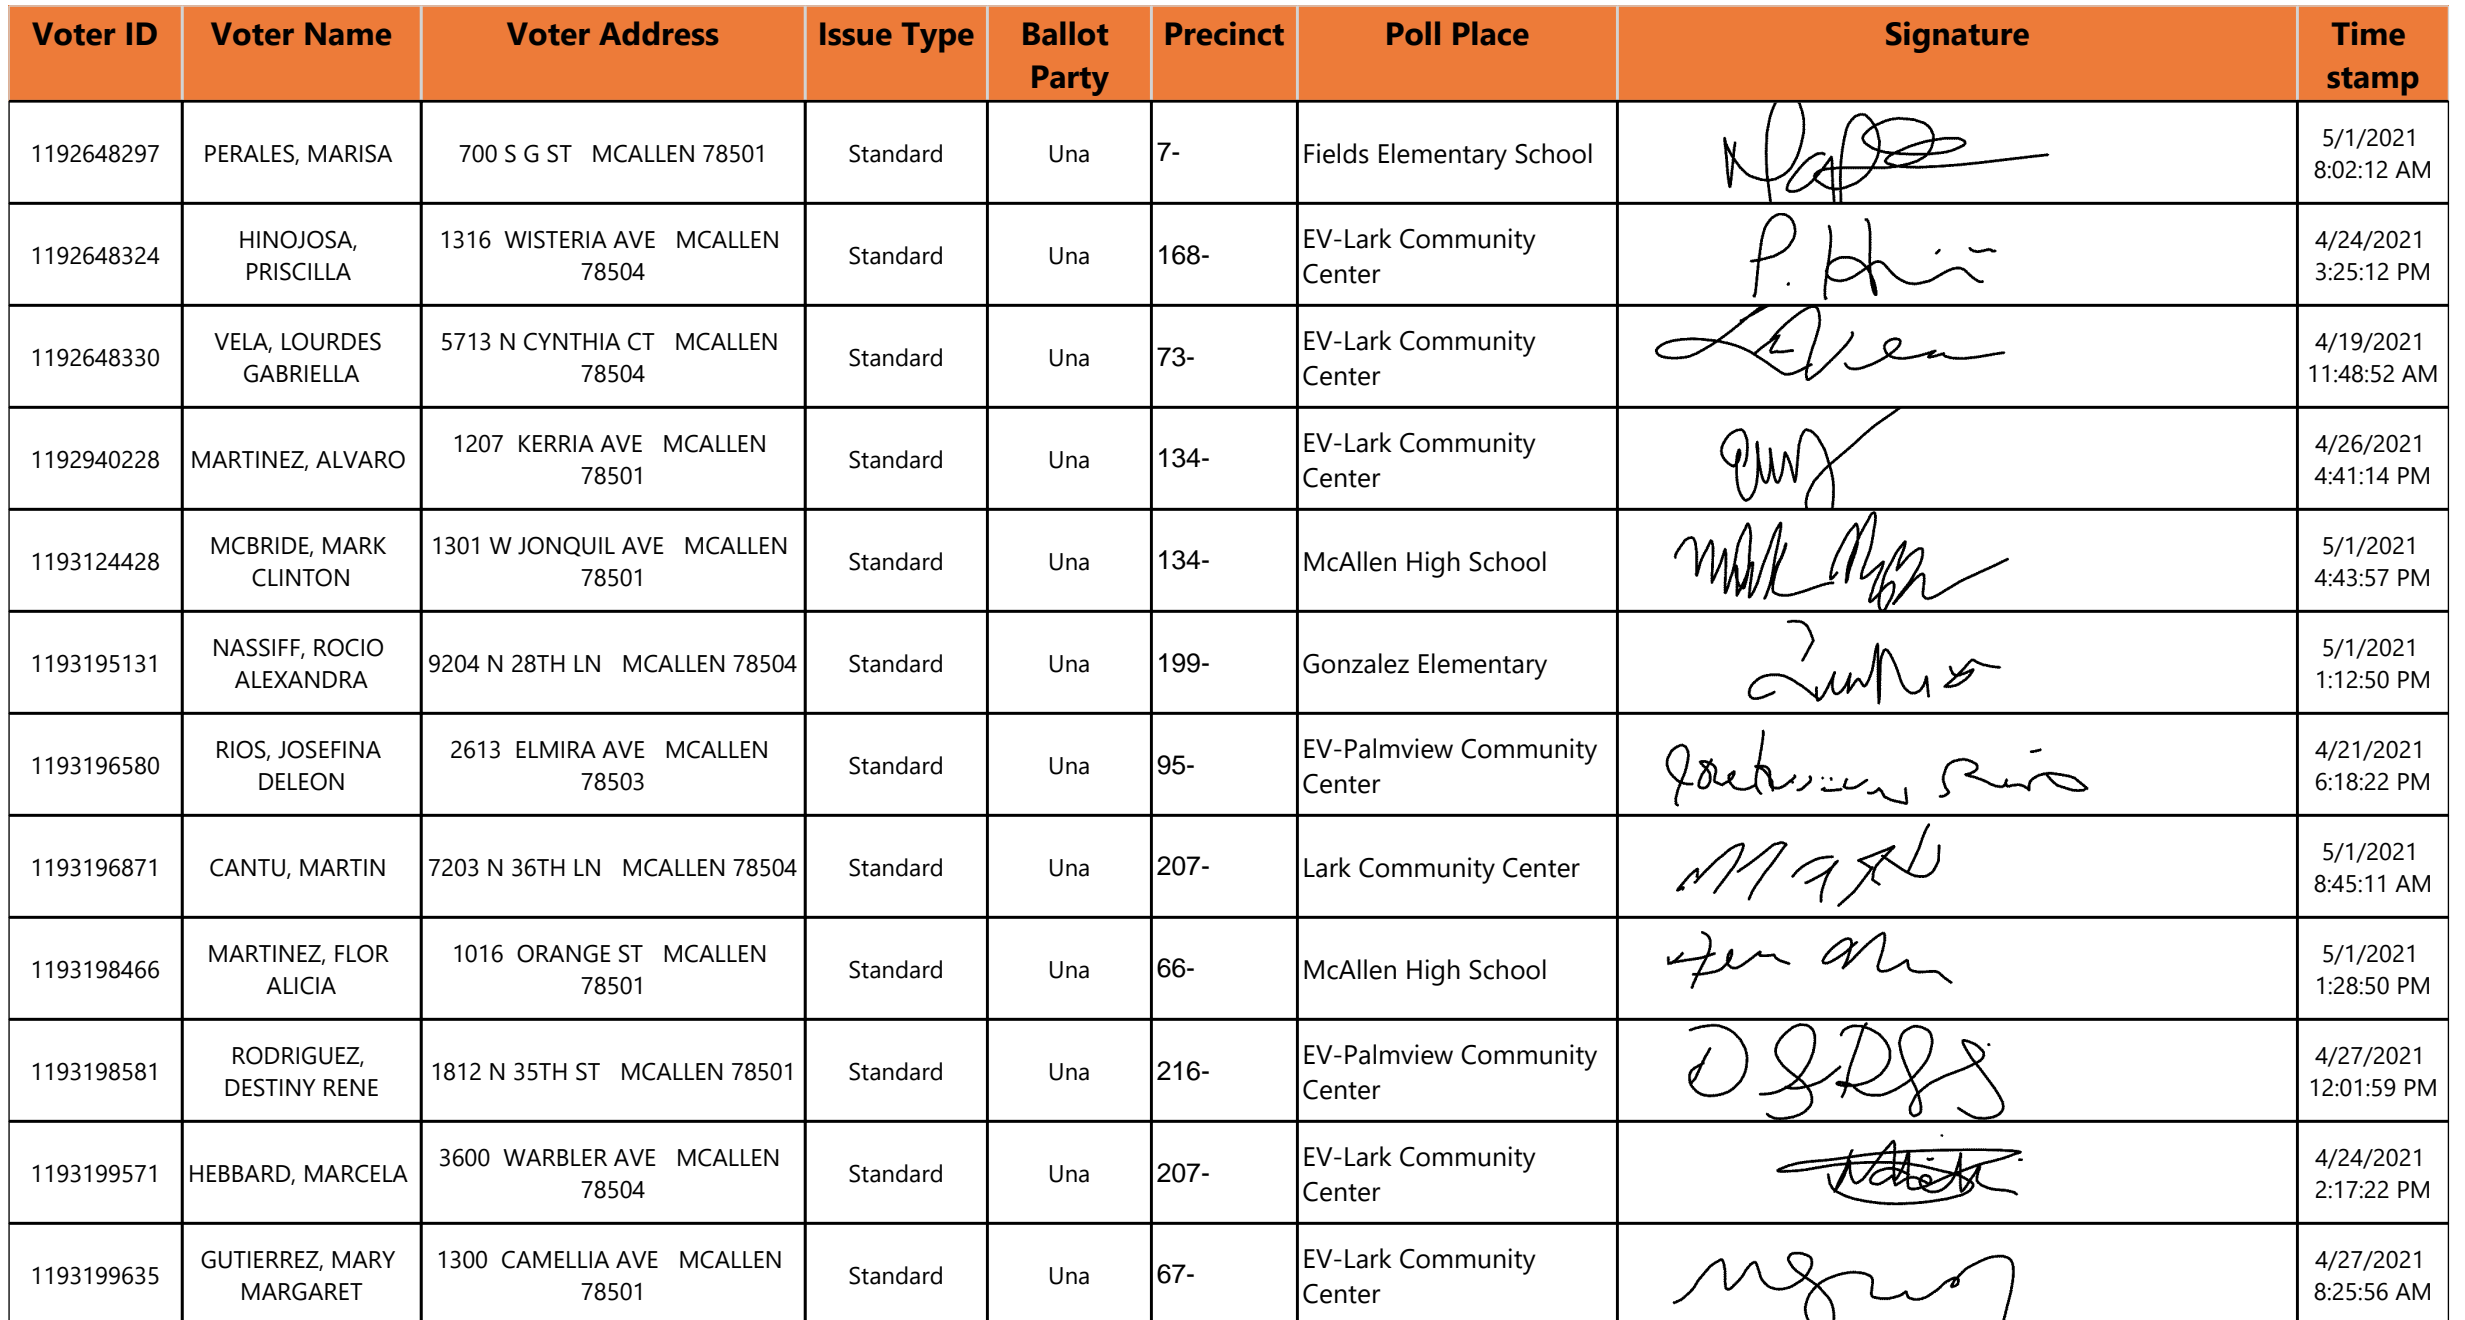 Voter ID Voter Name Voter Address Issue Type Ballot Party Precinct Poll Place Signature Time stamp
1192648297 PERALES, MARISA 700 S G ST MCALLEN 78501 Standard Una 7- Fields Elementary School 5/1/2021 8:02:12 AM
1192648324 HINOJOSA, PRISCILLA 1316 WISTERIA AVE MCALLEN 78504 Standard Una 168- EV-Lark Community Center P. 4/24/2021 3:25:12 PM
1192648330 VELA, LOURDES GABRIELLA 5713 N CYNTHIA CT MCALLEN 78504 Standard Una 73- EV-Lark Community Center 4/19/2021 11:48:52 AM
1192940228 MARTINEZ, ALVARO 1207 KERRIA AVE MCALLEN 78501 Standard Una 134- EV-Lark Community Center 4/26/2021 4:41:14 PM
1193124428 MCBRIDE, MARK CLINTON 1301 W JONQUIL AVE MCALLEN 78501 Standard Una 134- McAllen High School 5/1/2021 4:43:57 PM
1193195131 NASSIFF, ROCIO ALEXANDRA 9204 N 28TH LN MCALLEN 78504 Standard Una 199- Gonzalez Elementary 5/1/2021 1:12:50 PM
1193196580 RIOS, JOSEFINA DELEON 2613 ELMIRA AVE MCALLEN 78503 Standard Una 95- EV-Palmview Community Center 4/21/2021 6:18:22 PM
1193196871 CANTU, MARTIN 7203 N 36TH LN MCALLEN 78504 Standard Una 207- Lark Community Center 5/1/2021 8:45:11 AM
1193198466 MARTINEZ, FLOR ALICIA 1016 ORANGE ST MCALLEN 78501 Standard Una 66- McAllen High School 5/1/2021 1:28:50 PM
1193198581 RODRIGUEZ, DESTINY RENE 1812 N 35TH ST MCALLEN 78501 Standard Una 216- EV-Palmview Community Center 4/27/2021 12:01:59 PM
1193199571 HEBBARD, MARCELA 3600 WARBLER AVE MCALLEN 78504 Standard Una 207- EV-Lark Community Center 4/24/2021 2:17:22 PM
1193199635 GUTIERREZ, MARY MARGARET 1300 CAMELLIA AVE MCALLEN 78501 Standard Una 67- EV-Lark Community Center 4/27/2021 8:25:56 AM